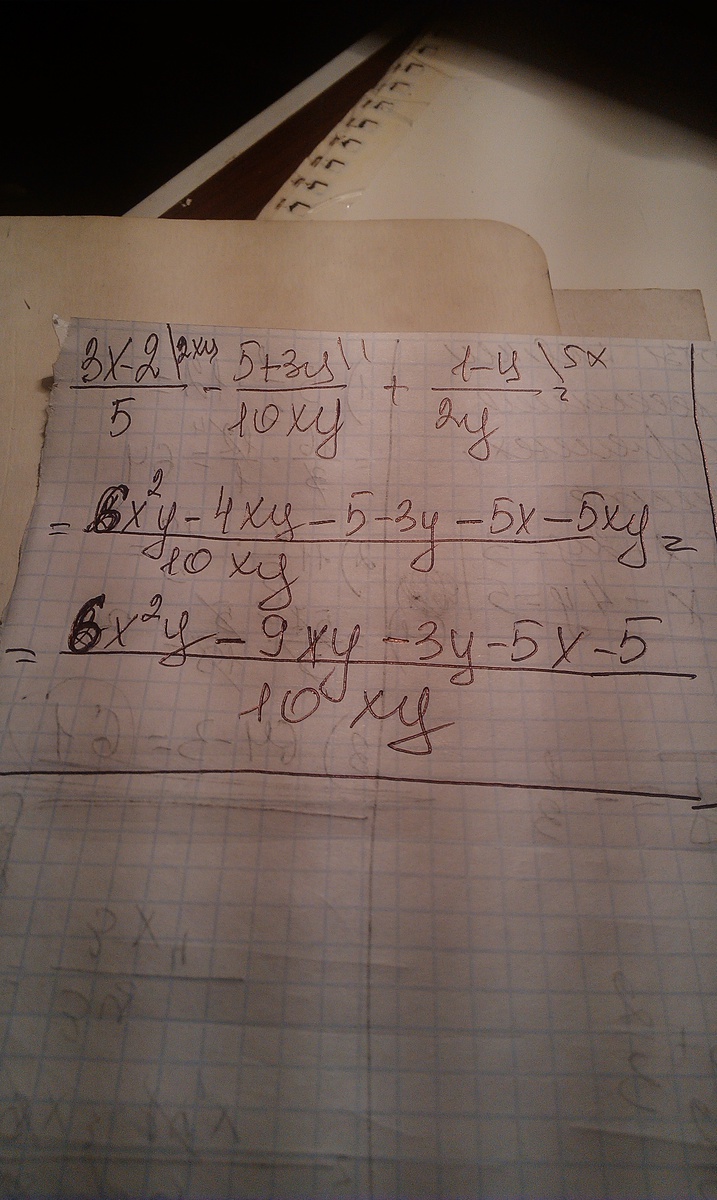 (3x-2)/5 \2xy - (5+3y)/10xy \1 + (1-y)/2y \5x =
= (6x²y - 4xy - 5 - 3y - 5x - 5xy)/10xy =
= (6x²y - 9xy - 3y - 5x - 5)/10xy